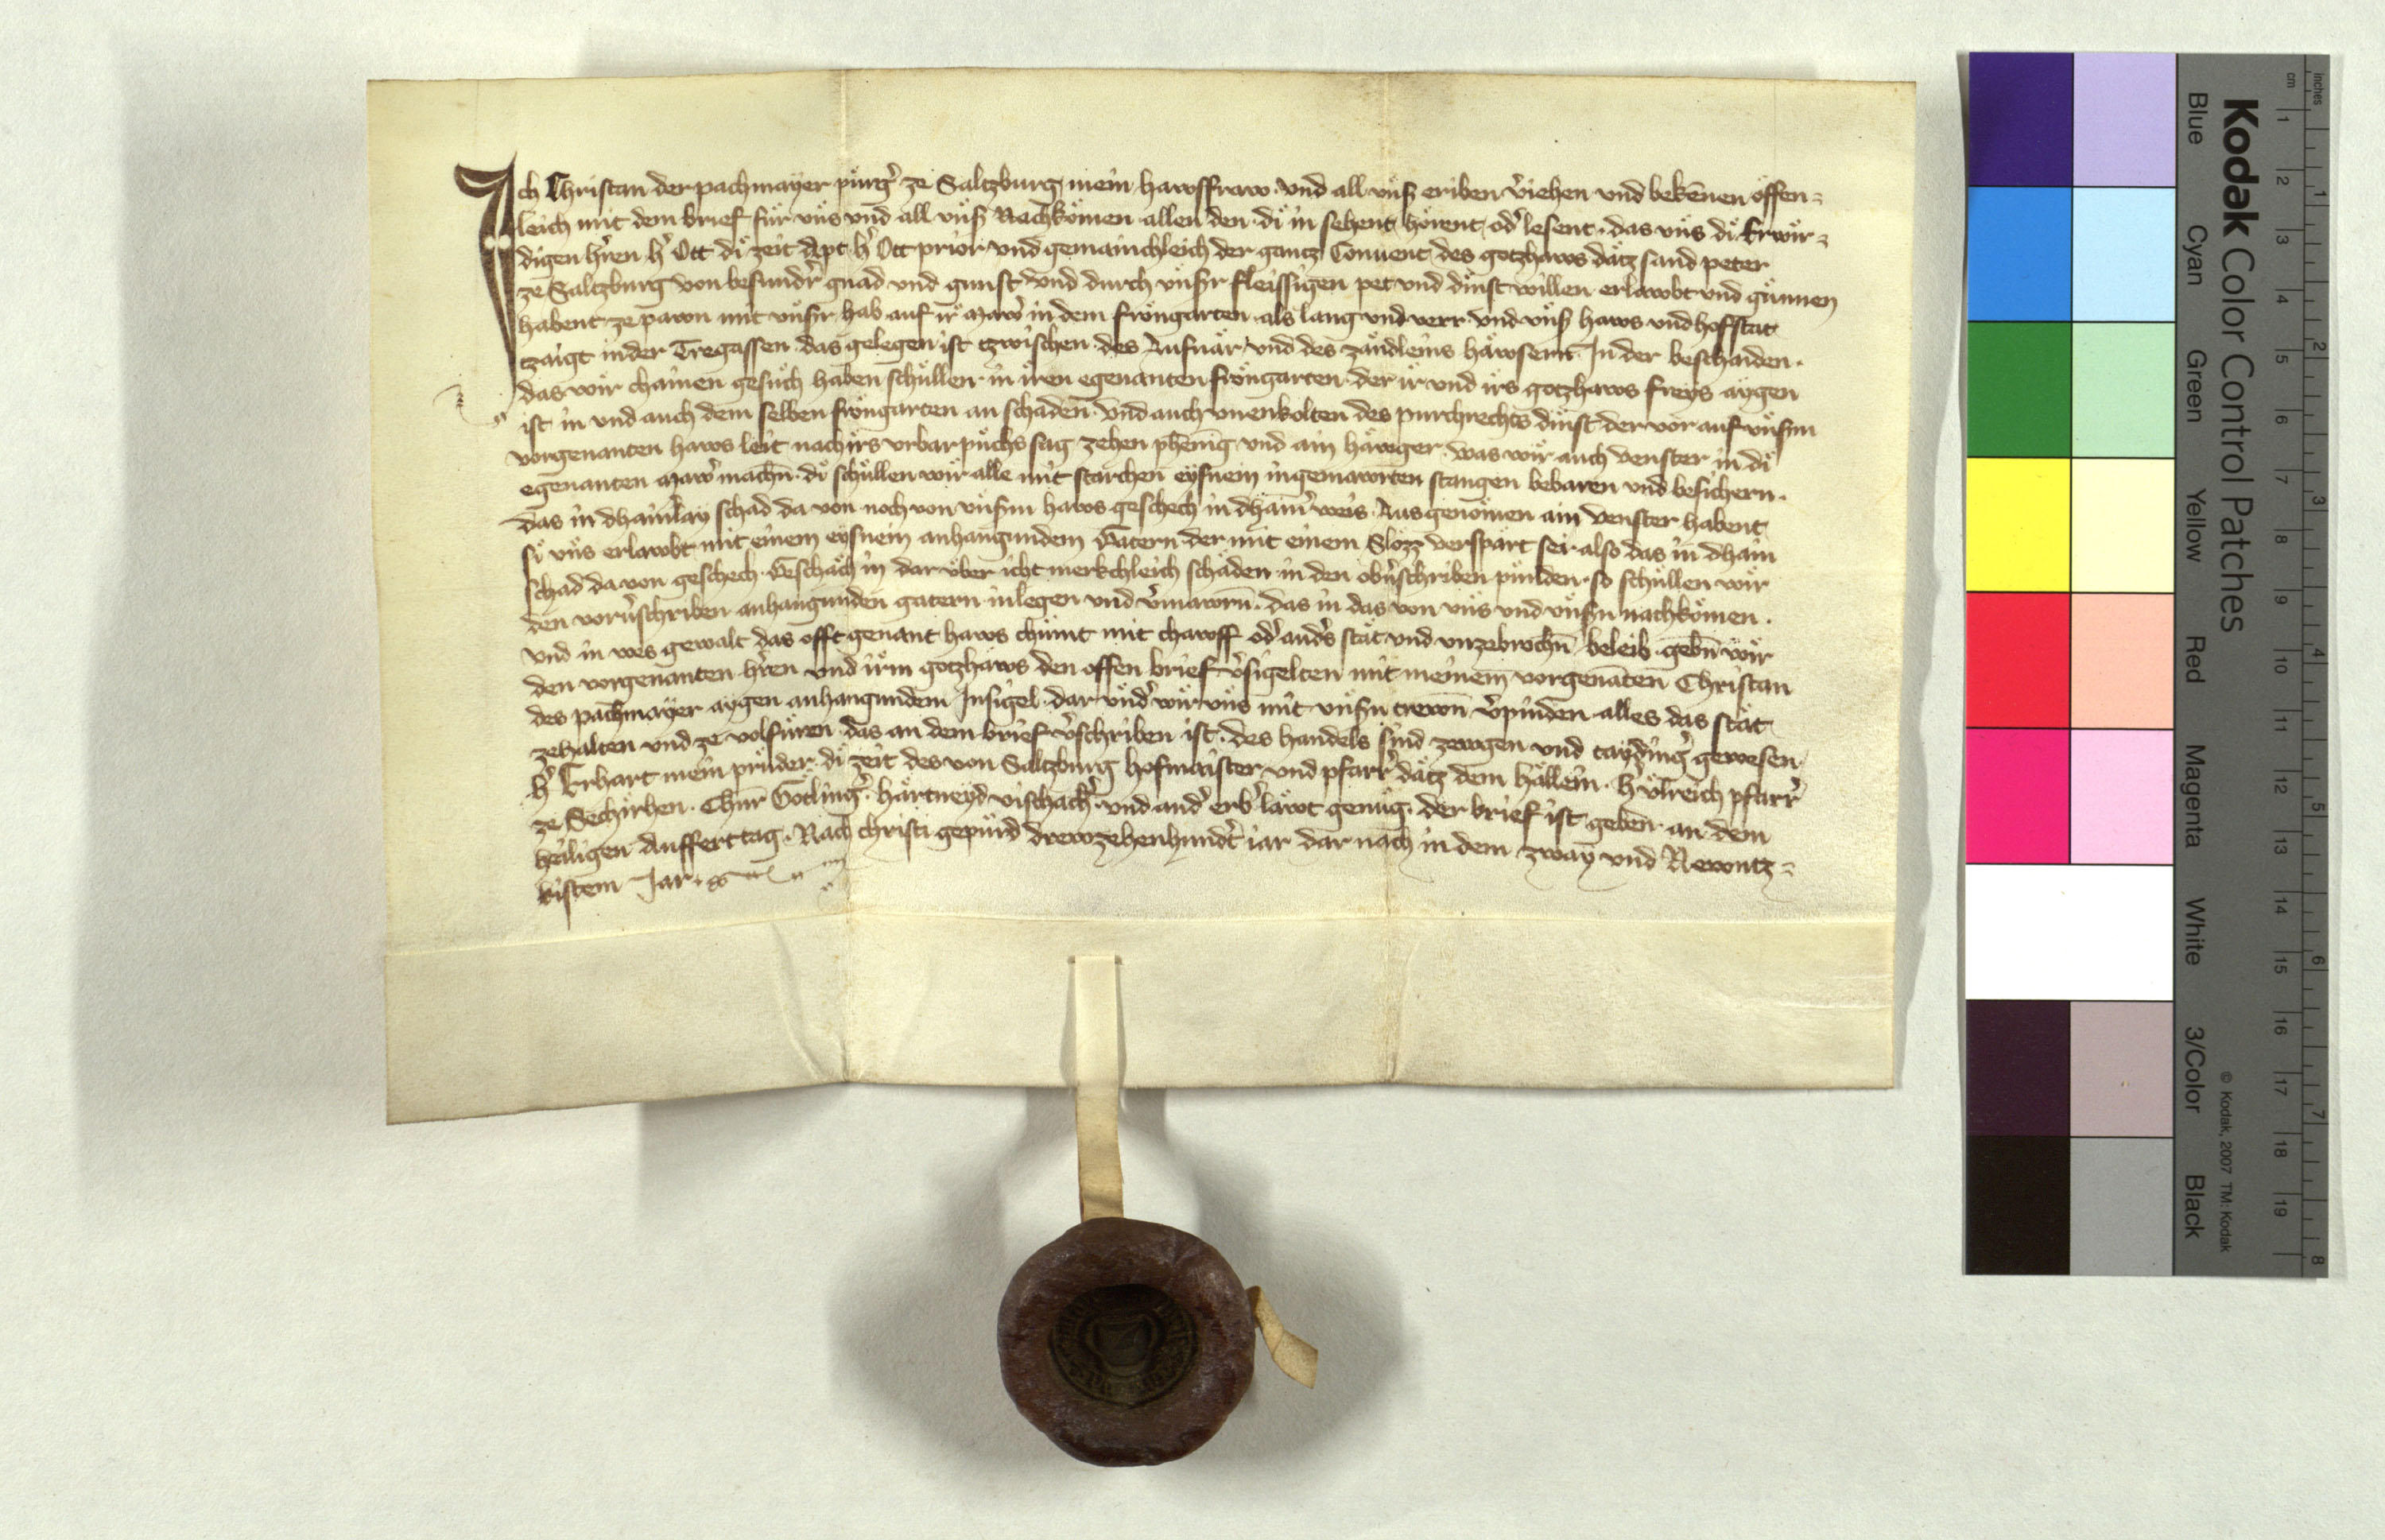 Ich Christan der pachmayer purg̉ ze Saltzburg mein hawsfraw · vnd all vnsß eriben v̉iehen vnd bekēnen offen=
leich mit dem brief fuͤr vns vnd all vnsß Nachkömen allen den · di in sehent hörent od̉ lesent · das vns di Erwir=
digen h̉ren h̉ Ott di zeit Apt h̉ Ott prior vnd gemainchleich der gantz Conuent des gotzhaws datz sand peter
ze Saltzburg von besundr̉ gnad vnd gunst vnd durch vnsßr fleissigen pet vnd dinst willen erlawbt vnd gunnen
habent ze pawn mit vnsßr hab auf ir mawr̉ in dem frongarten als lang vnd verr · vnd vnsß haws vnd hofstat
tzaigt in der Tregassen das gelegen ist tzwischen des Aufnär vnd des zändleins häwsern In der beschaiden ·
das wir chainen gesuch haben schullen in iren egenanten frongarten der ir vnd irs gotzhaws freys aygen
ist in vnd auch dem selben frongarten an schaden vnd auch vnenkolten des purchrechts dinst der vor auf vnsßm
vorgenanten haws leit nach irs vrbar puchs sag zehen phenīg vnd ain häwger was wir auch venster in di
egenanten mawr̉ machn̄ · di schullen wir alle mit starchen eysnein ingemawrten stangen bebaren vnd besichern ·
das in dhainrlay schad da von noch von vnsßm haws geschech in dhainr̉ weis · Ausgenomen ain venster habent
si vns erlawbt mit einem eysnein anhangundem Gatern der mit einem Slozz verspart sei also das in dhain
schad da von geschech · Geschäch in dar vber icht merkchleich schaden in den obn̉schriben punden · so schullen wir
den vorn̉schriben anhangunden gatern inlegen vnd v̉mawrn̄ · das in das von vns vnd vnsßn nachkömen ·
vnd in wes gewalt das offt genant haws chumt mit chawff od̉ and̉s stät vnd vnzebrochn̄ beleib · gebn̄ wir
den vorgenanten h̉ren vnd irm gotzhaws den offen brief v̉sigelten mit meinem vorgenāten Christan
des pachmayer aygen anhangundem Insigel · dar vnd̉ wir vns mit vnsßn trewn̄ v̉pinden alles das stät
zehalten vnd ze volfuren das an dem brief v̉schriben ist · des handels sind zewgen vnd tayding̉ gewesen
h̉ Erhart mein pruder di zeit des von Saltzburg hofmaister vnd pfarr̉ dätz dem hällein · h̉ vlreich pfarr̉
ze Sechirhen · Chunr̄ Götling̉ · härtneyd vischach̉ · vnd and̉ erb̉ läwt genug · der brief ist geben an dem
heiligen Auffert tag · Nach christi gepurd drewzehenhundt̉ iar dar nach in dem zway vnd Newntz=
kistem Jar ·
Kodak Color Control Patches
© Kodak, 2007 TM: Kodak
Blue Cyan Green Yellow Red Magenta White 3/Color Black
cm 1 2 3 4 5 6 7 8 9 10 11 12 13 14 15 16 17 18 19
inches 1 2 3 4 5 6 7 8